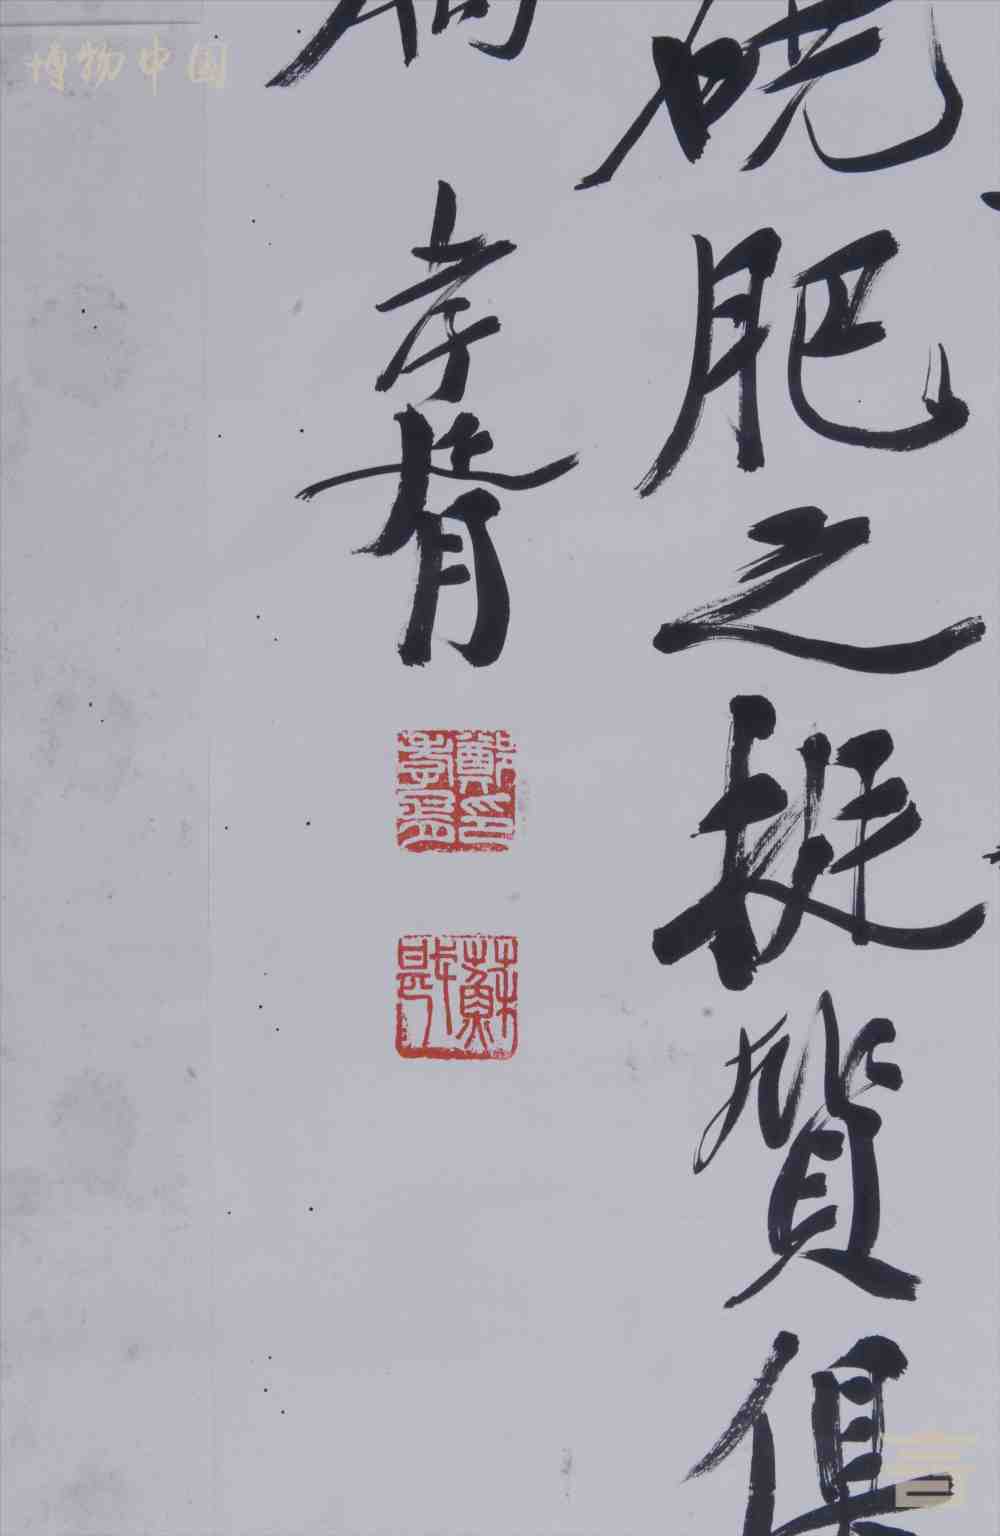 硗肥之挺質俱
孝胥
鄭印
孝胥
蘇戡
博物中国